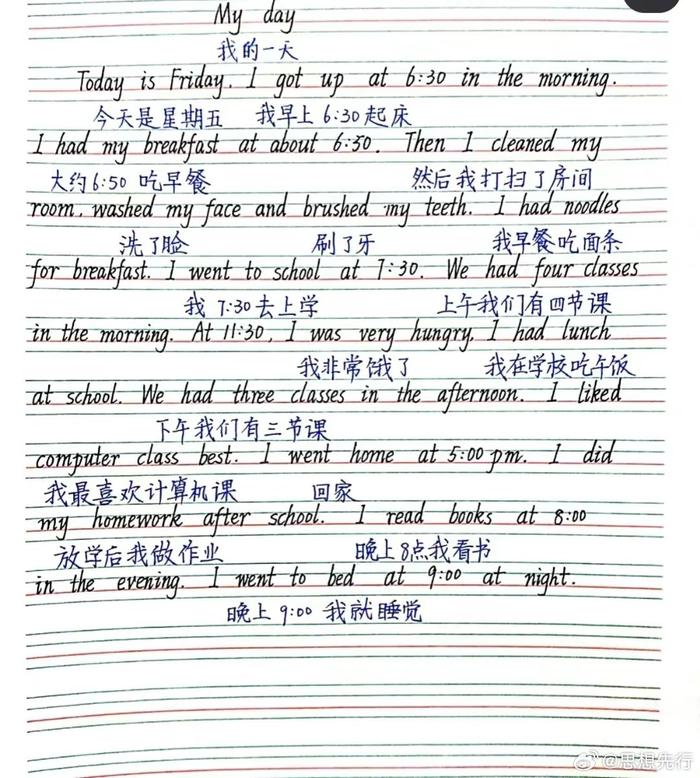 My day
我的一天
Today is Friday. I got up at 6:30 in the morning.
今天是星期五 我早上6:30起床
I had my breakfast at about 6:50. Then I cleaned my
大约6:50吃早餐 然后我打扫了房间
room, washed my face and brushed my teeth. I had noodles
洗了脸 刷了牙 我早餐吃面条
for breakfast. I went to school at 7:30. We had four classes
我7:30去上学 上午我们有四节课
in the morning. At 11:30, I was very hungry. I had lunch
我非常饿了 我在学校吃午饭
at school. We had three classes in the afternoon. I liked
下午我们有三节课
computer class best. I went home at 5:00 pm. I did
我最喜欢计算机课 回家
my homework after school. I read books at 8:00
放学后我做作业 晚上8点我看书
in the evening. I went to bed at 9:00 at night.
晚上9:00我就睡觉
@思想先行